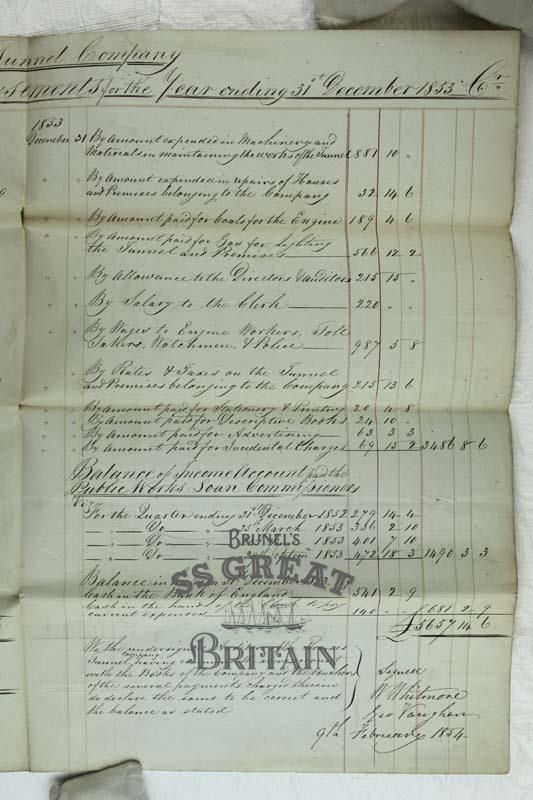 Tunnel Company
sements for the Year ending 31st December 1853 Cr
1853
December 31 By Amount expended in Machinery and
Materials in maintaining the works of the Tunnel 881 10 "
" By Amount expended in repairs of Houses
and Premises belonging to the Company 32 14 6
" By Amount paid for Coals for the Engine 189 4 6
" By Amount paid for Gas for Lighting
the Tunnel and Premises 566 12 2
" By Allowance to the Directors & Auditors 215 15 "
" By Salary to the Clerk 220 " "
" By Wages to Engine Workers, Toll
Takers, Watchmen, & Police 987 5 8
" By Rates & Taxes on the Tunnel
and Premises belonging to the Company 215 13 6
By Amount paid for Stationery & Printing 20 4 8
By Amount paid for Descriptive Books 24 10 "
By Amount paid for Advertising 63 3 3
By Amount paid for Incidental Charges 69 15 2 3486 8 6
Balance of Income Account paid the
Public Works Loan Commissioners
Viz
For the Quarter ending 31st December 1852 279 14 4
" Do 25th March 1853 336 2 10
" Do 1853 401 7 10
" Do 1853 472 18 3 1490 3 3
Balance in December
Cash in the Bank of England 541 2 9
Cash in the hands of the to pay
current expences 140 " " 681 2 9
£5657 14 6
We the undersigned
Tunnel Company having
with the Books of the Company and the Vouchers
of the several payments charged therein
do declare the same to be correct and
the balance as stated
Signed
W Whitmore
Geo Vaughan
9th February 1854
BRUNEL'S
SS GREAT
BRITAIN